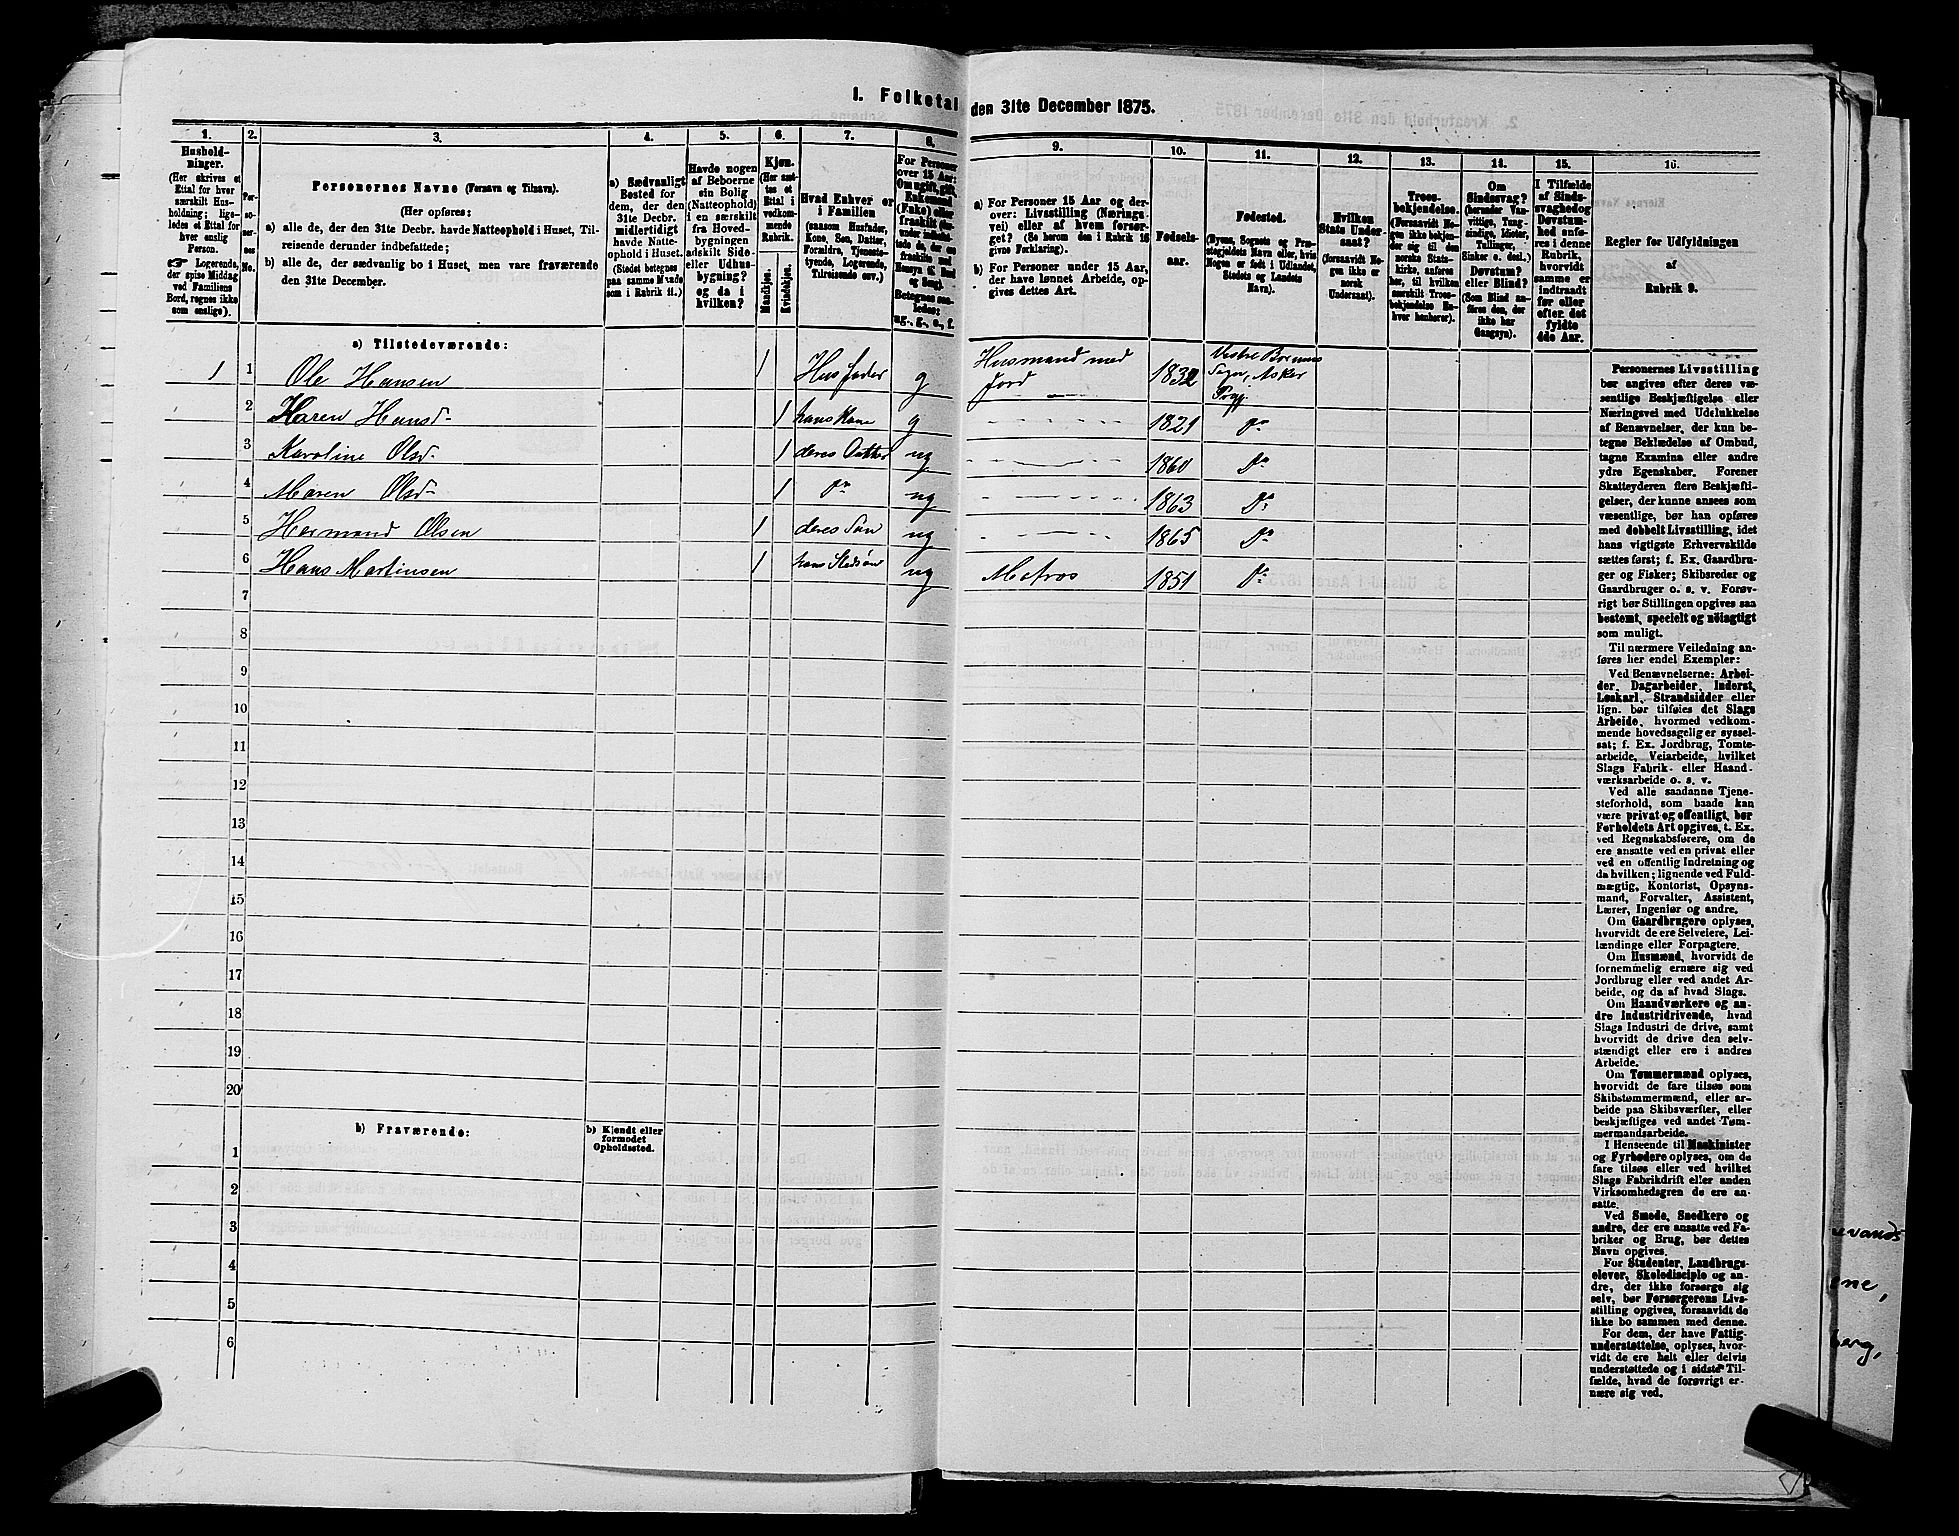 1. Folketal den 31te December 1875.
1. 2. 3. 4. 5. 6. 7. 8. 9. 10. 11. 12. 13. 14. 15. 16.
Hushold-
ninger.
(Her skrives et
Ettal for hver
særskilt Hus-
holdning; lige-
ledes et Ettal for
hver enslig
Person.
☞ Logerende,
der spise Middag
ved Familiens
Bord, regnes ikke
som enslige).
Per-
so-
ner-
nes
No.
Personernes Navne (Fornavn og Tilnavn).
(Her opføres:
a) alle de, der den 31te Decbr. havde Natteophold i Huset, Til-
reisende derunder indbefattede;
b) alle de, der sædvanlig bo i Huset, men vare fraværende
den 31te December.
a) Sædvanligt
Bosted for
dem, der den
31te Decbr.
midlertidigt
havde Natte-
ophold i Huset.
(Stedet betegnes
paa samme Maade
som i Rubrik 11.)
Havde nogen
af Beboerne
sin Bolig
(Natteophold)
i en særskilt
fra Hoved-
bygningen
adskilt Side-
eller Udhus-
bygning?
og da i
hvilken?
Kjøn.
(Her sæt-
tes et
Ettal i
vedkom-
mende
Rubrik.
Mandkjøn.
Kvindekjøn.
Hvad Enhver er
i Familien
(saasom Husfader,
Kone, Søn, Datter,
Forældre, Tjeneste-
tyende, Logerende,
Tilreisende osv.)
For Personer
over 15 Aar:
Om ugift, gift,
Enkemand
(Enke) eller
fraskilt
Betegnes saa-
ledes:
ug., g., e., f.
a) For Personer 15 Aar og der-
over: Livsstilling (Nærings-
vei) eller af hvem forsør-
get? (Se herom den i Rubrik 16
givne Forklaring).
b) For Personer under 15 Aar,
der have lønnet Arbeide, op-
gives dettes Art.
Fødsels-
aar.
Fødested.
(Byens, Sognets og Præ-
stegjeldets Navn eller, hvis
Nogen er født i Udlandet,
Stedets og Landets
Navn).
Hvilken
Stats Under-
saat?
(forsaavidt No-
gen ikke er
norsk
Undersaat).
Troes-
bekjendelse.
(Forsaavidt No-
gen ikke bekjen-
der sig til den
norske Stats-
kirke, anføres
her, til hvilken
særskilt Troes-
bekjendelse En-
hver henhører).
Om
Sindssvag?
(herunder Van-
vittige, Tung-
sindige, Idioter,
Tullinger,
Sinker o. desl.)
Døvstum?
eller Blind?
(Som Blind an-
føres den, der
ikke har
Gangsyn).
I Tilfælde
af Sinds-
svaghed og
Døvstum-
hed anfø-
res i denne
Rubrik,
hvorvidt
samme er
indtraadt
før eller
efter det
fyldte
4de Aar.
Regler for Udfyldningen
af
Rubrik 9.
a) Tilstedeværende:
1 1 Ole Hansen 1 Husfader g Husmand med Jord 1832 Vestre Bærums Sogn, Asker Prgj.
2 Karen Hansd 1 hans Kone g 1821 Do
3 Karoline Olsd 1 deres Datter ug 1860 Do
4 Maren Olsd 1 Do ug 1863 Do
5 Hermand Olsen 1 deres Søn ug 1865 Do
6 Hans Martinsen 1 hans Stedsøn ug Matros 1851 Do
7
8
9
10
11
12
13
14
15
16
17
18
19
20
b) Fraværende:
b) Kjendt eller
formodet
Opholdssted.
1
2
3
4
5
6
Personernes Livsstilling
bør angives efter deres væ-
sentlige Beskjæftigelse eller
Næringsvei med Udelukkelse
af Benævnelser, der kun be-
tegne Beklædelse af Ombud,
tagne Examina eller andre
ydre Egenskaber. Forener
Skatteyderen flere Beskjæfti-
gelser, der kunne ansees som
væsentlige, bør han opføres
med dobbelt Livsstilling, idet
hans vigtigste Erhvervskilde
sættes først; f. Ex. Gaardbru-
ger og Fisker; Skibsreder og
Gaardbruger o. s. v. Forøv-
rigt bør Stillingen opgives saa
bestemt, specielt og nøiagtigt
som muligt.
Til nærmere Veiledning an-
føres her endel Exempler:
Ved Benævnelserne: Arbei-
der, Dagarbeider, Inderst,
Løskarl, Strandsidder eller
lign. bør tilføies det Slags
Arbeide, hvormed vedkom-
mende hovedsagelig er syssel-
sat; f. Ex. Jordbrug, Tomte-
arbeide, Veiarbeide, hvilket
Slags Fabrik- eller Haand-
værksarbeide o. s. v.
Ved alle saadanne Tjene-
steforhold, som baade kan
være privat og offentligt, bør
Forholdets Art opgives, t. Ex.
ved Regnskabsførere, om de
ere ansatte ved en privat eller
ved en offentlig Indretning og
da hvilken; lignende ved Fuld-
mægtig, Kontorist, Opsyns-
mand, Forvalter, Assistent,
Lærer, Ingeniør og andre.
Om Gaardbrugere oplyses,
hvorvidt de ere Selveiere, Lei-
lændinge eller Forpagtere.
Om Husmænd, hvorvidt de
fornemmelig ernære sig ved
Jordbrug eller ved andet Ar-
beide, og da af hvad Slags.
Om Haandværkere og an-
dre Industridrivende, hvad
Slags Industri de drive, samt
hvorvidt de drive den selv-
stændigt eller ere i andres
Arbeide.
Om Tømmermænd oplyses,
hvorvidt de fare tilsøs som
Skibstømmermænd, eller ar-
beide paa Skibsværfter, eller
beskjæftiges ved andet Tøm-
mermandsarbeide.
I Henseende til Maskinister
og Fyrbødere oplyses, om de
fare tilsøs eller ved hvilket
Slags Fabrikdrift eller anden
Virksomhedsgren de ere an-
satte.
Ved Smede, Snedkere og
andre, der ere ansatte ved Fa-
briker og Brug, bør dettes
Navn opgives.
For Studenter, Landbrugs-
elever, Skoledisciple og an-
dre, der ikke forsørge sig
selv, bør Forsørgerens Livs-
stilling opgives, forsaavidt de
ikke bo sammen med denne.
For dem, der have Fattig-
understøttelse, oplyses, hvor-
vidt de ere helt eller delvis
understøttede og i sidste Til-
fælde, hvad de forøvrigt er-
nære sig ved.